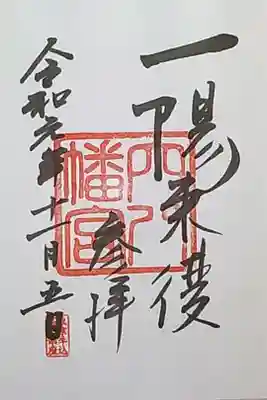 一陽来復
穴八幡宮
参拝
令和元年十一月五日